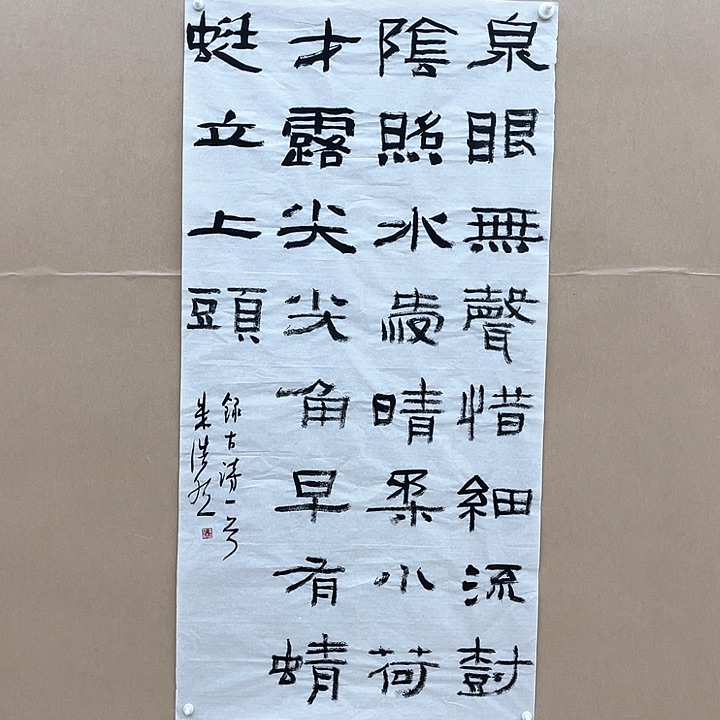 泉眼無聲惜細流尌
陰照水愛晴柔小荷
才露尖尖角早有蜻
蜓立上頭
錄古詩一首
朱浩